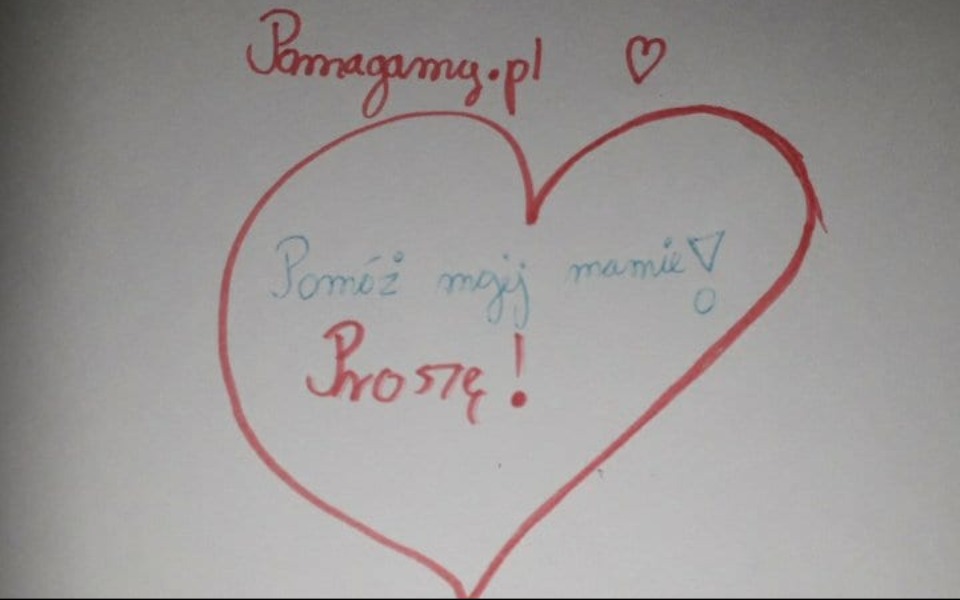 Pomagamy.pl ♡
Pomóż mojej mamie!
Proszę!